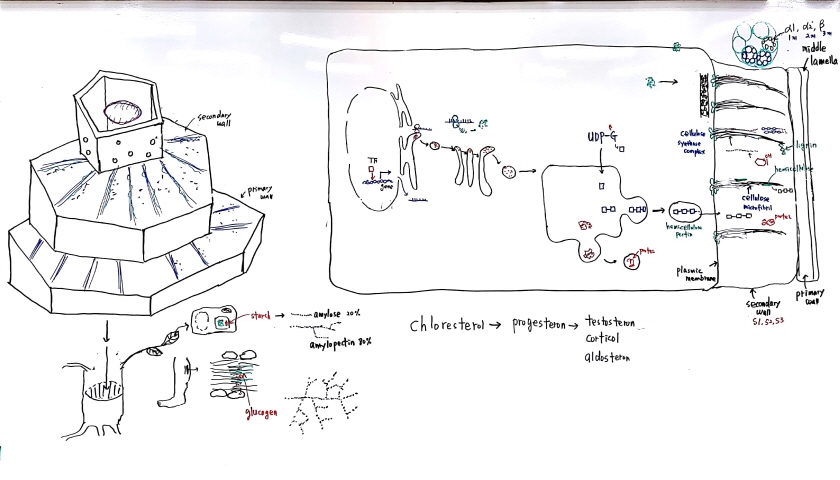 secondary
wall
primary
wall
starch
amylose 20%
amylopectin 80%
glucogen
TF
gene
UDP-G
hemicellulose
pectin
protei
plasmic
membrane
Chloresterol → progesteron → testosteron
corticol
aldosteron
α1, α2, β
middle
lamella
cellulose
synthase
complex
lignin
OH
hemicellulose
cellulose
microfibril
protei
secondary
wall
S1, S2, S3
primary
wall